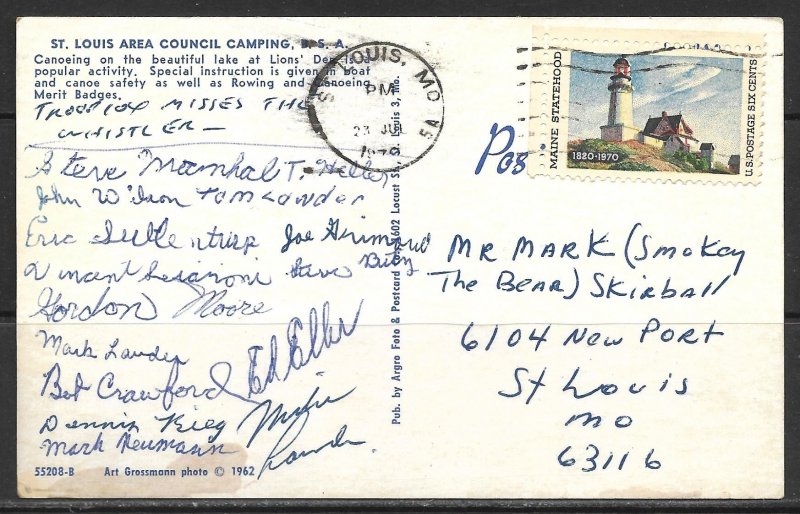 ST. LOUIS AREA COUNCIL CAMPING, B. S. A.
Canoeing on the beautiful lake at Lions' Den, a
popular activity. Special instruction is given in boat
and canoe safety as well as Rowing and Canoeing
Merit Badges.
MISSES THE
WHISTLER —
Steve T. Heller
John Wilson Tom Lauder
Eric Joe
Steve
Gordon Moore
Mark Lauder
Ed Eller
Bob Crawford
Dennis Krieg Mike
Mark Neumann Lauder
55208-B Art Grossmann photo © 1962
Pub. by Argro Foto & Postcard 3602 Locust St. Louis 3, Mo.
ST LOUIS, MO
PM
23 JUL
1970
5A
MAINE STATEHOOD
1820-1970
U.S. POSTAGE SIX CENTS
Pos
MR MARK (SMOKEY
THE BEAR) SKIRBALL
6104 NEW PORT
ST LOUIS
MO
63116